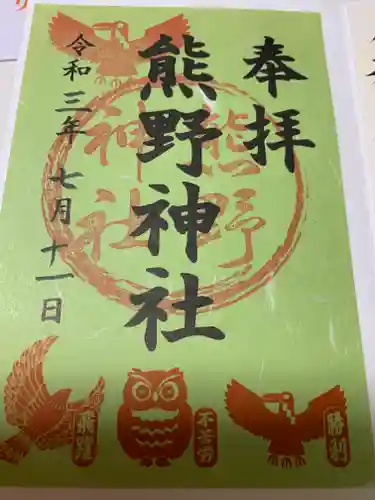 奉拝
熊野神社
熊野
神社
令和三年七月十一日
飛躍
不苦労
勝利